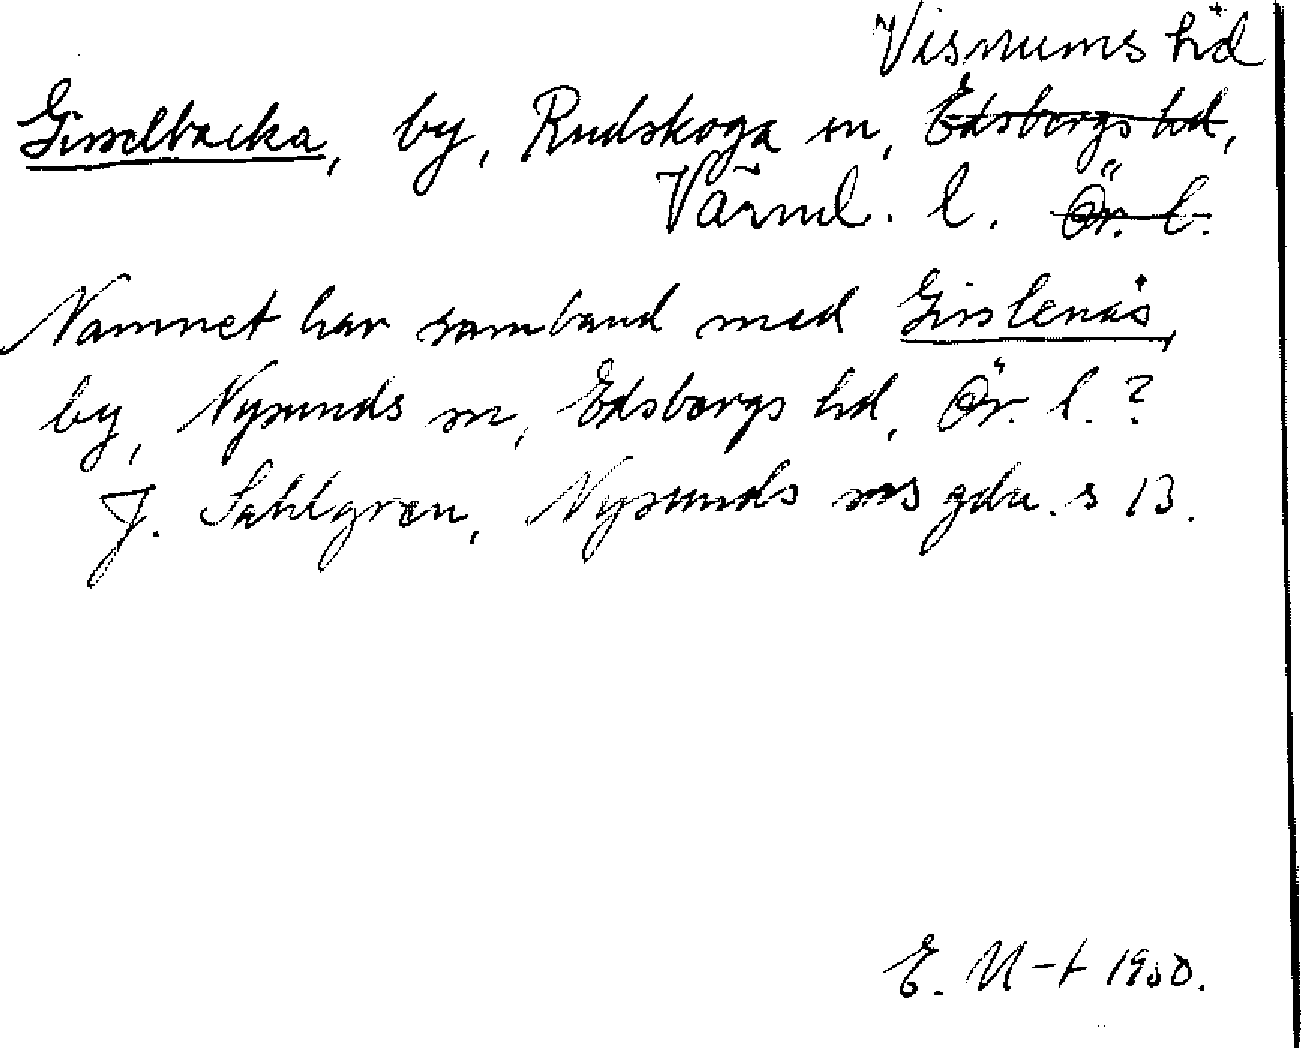 Visnums hd
Gisselbacka, by, Rudskoga sn, Edsbergs hd,
Värml. l. Ör. l.
Namnet har samband med Gisslenäs,
by, Nysunds sn, Edsbergs hd, Ör. l.?
J. Sahlgren, Nysunds sns gdn. s 13.
E. U-t 1950.